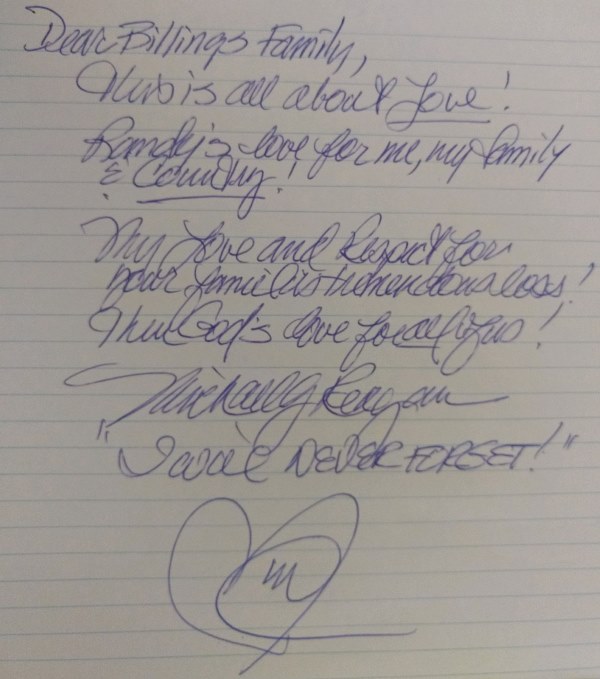 Dear Billings Family,
This is all about Love!
Randy's love for me, my family
& Country!
My Love and Respect for
your families tremendous loss!
Thru God's love for all of us!
Michael G Reagan
"I will NEVER FORGET!"
M